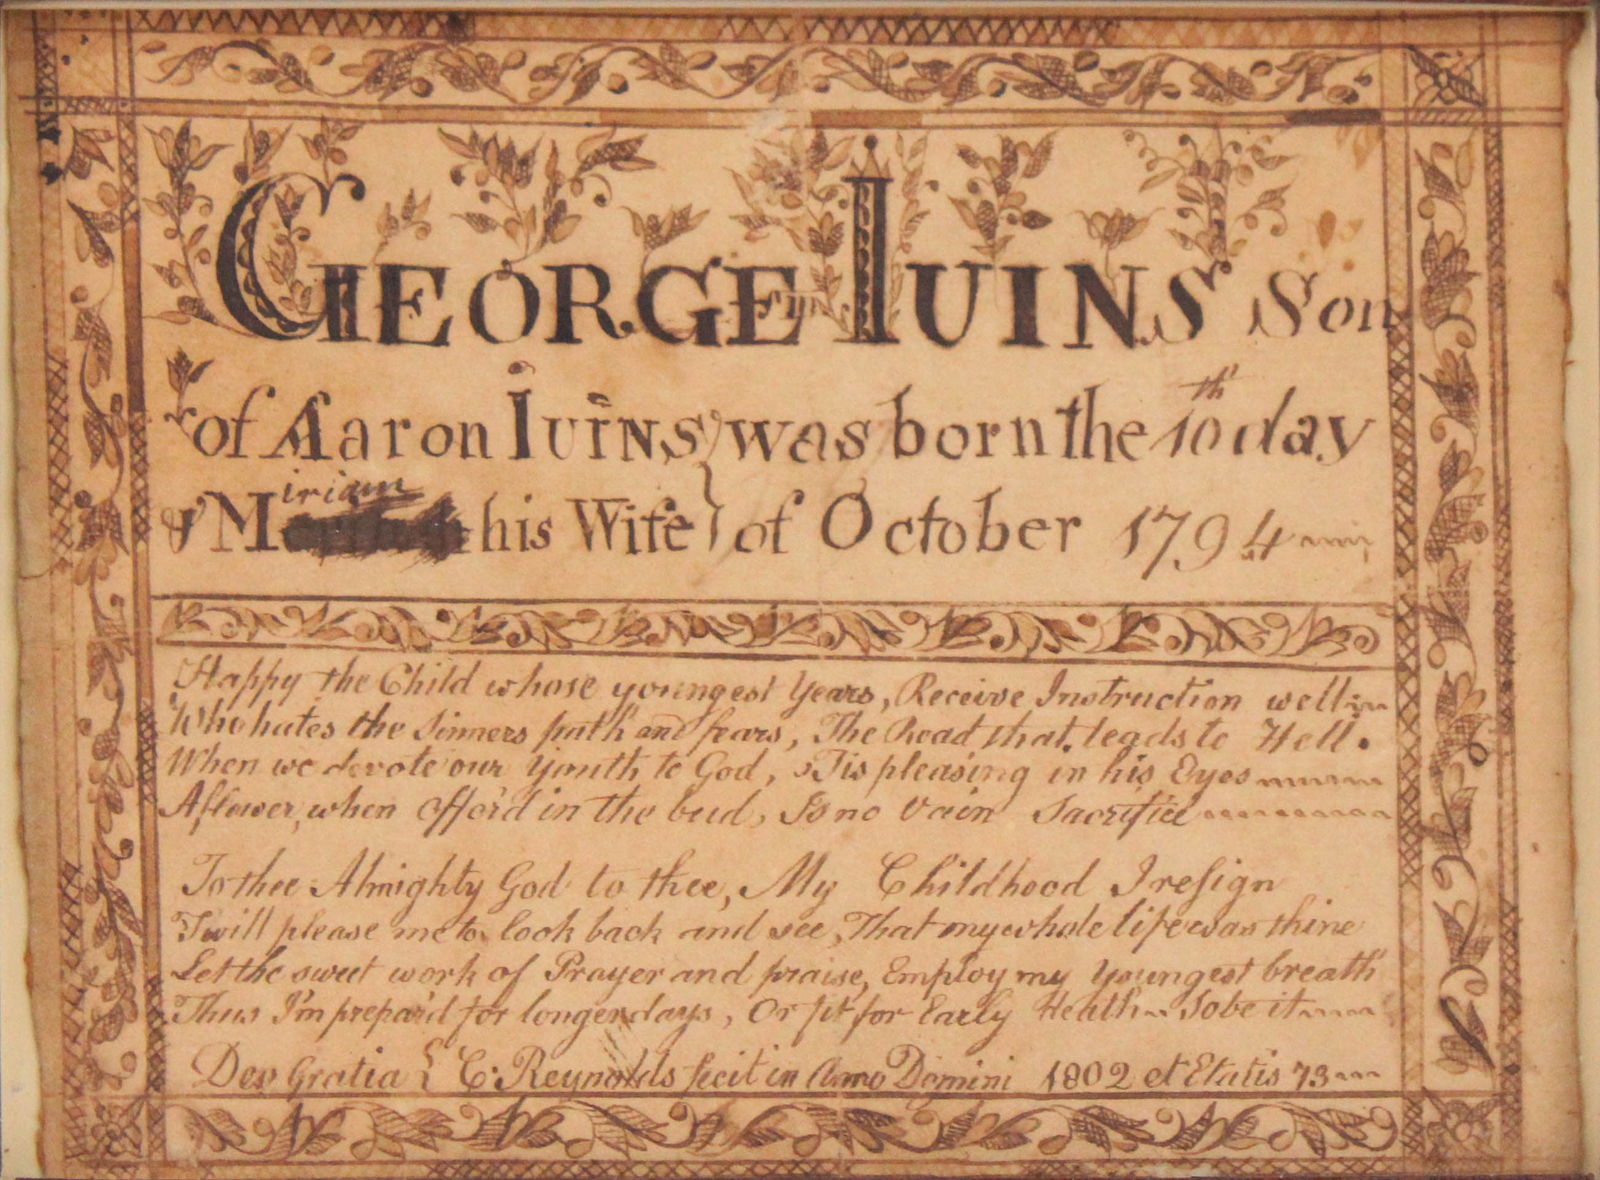 GEORGE IUINS Son
of Aaron IUINS, was born the 10th day
& Miriam his Wife } of October 1794
Happy the Child whose youngest Years, Receive Instruction well
Who hates the Sinners path and fears, The Road that leads to Hell.
When we devote our Youth to God, 'Tis pleasing in his Eyes
A flower, when offer'd in the bud, Is no Vain Sacrifice
To thee Almighty God to thee, My Childhood I resign
'Twill please me to look back and see, That my whole life was thine
Let the sweet work of Prayer and praise, Employ my Youngest breath
Thus I'm prepar'd for longer days, Or fit for Early Death So be it
Deo Gratia { C. Reynolds fecit in Anno Domini 1802 et Etatis 73